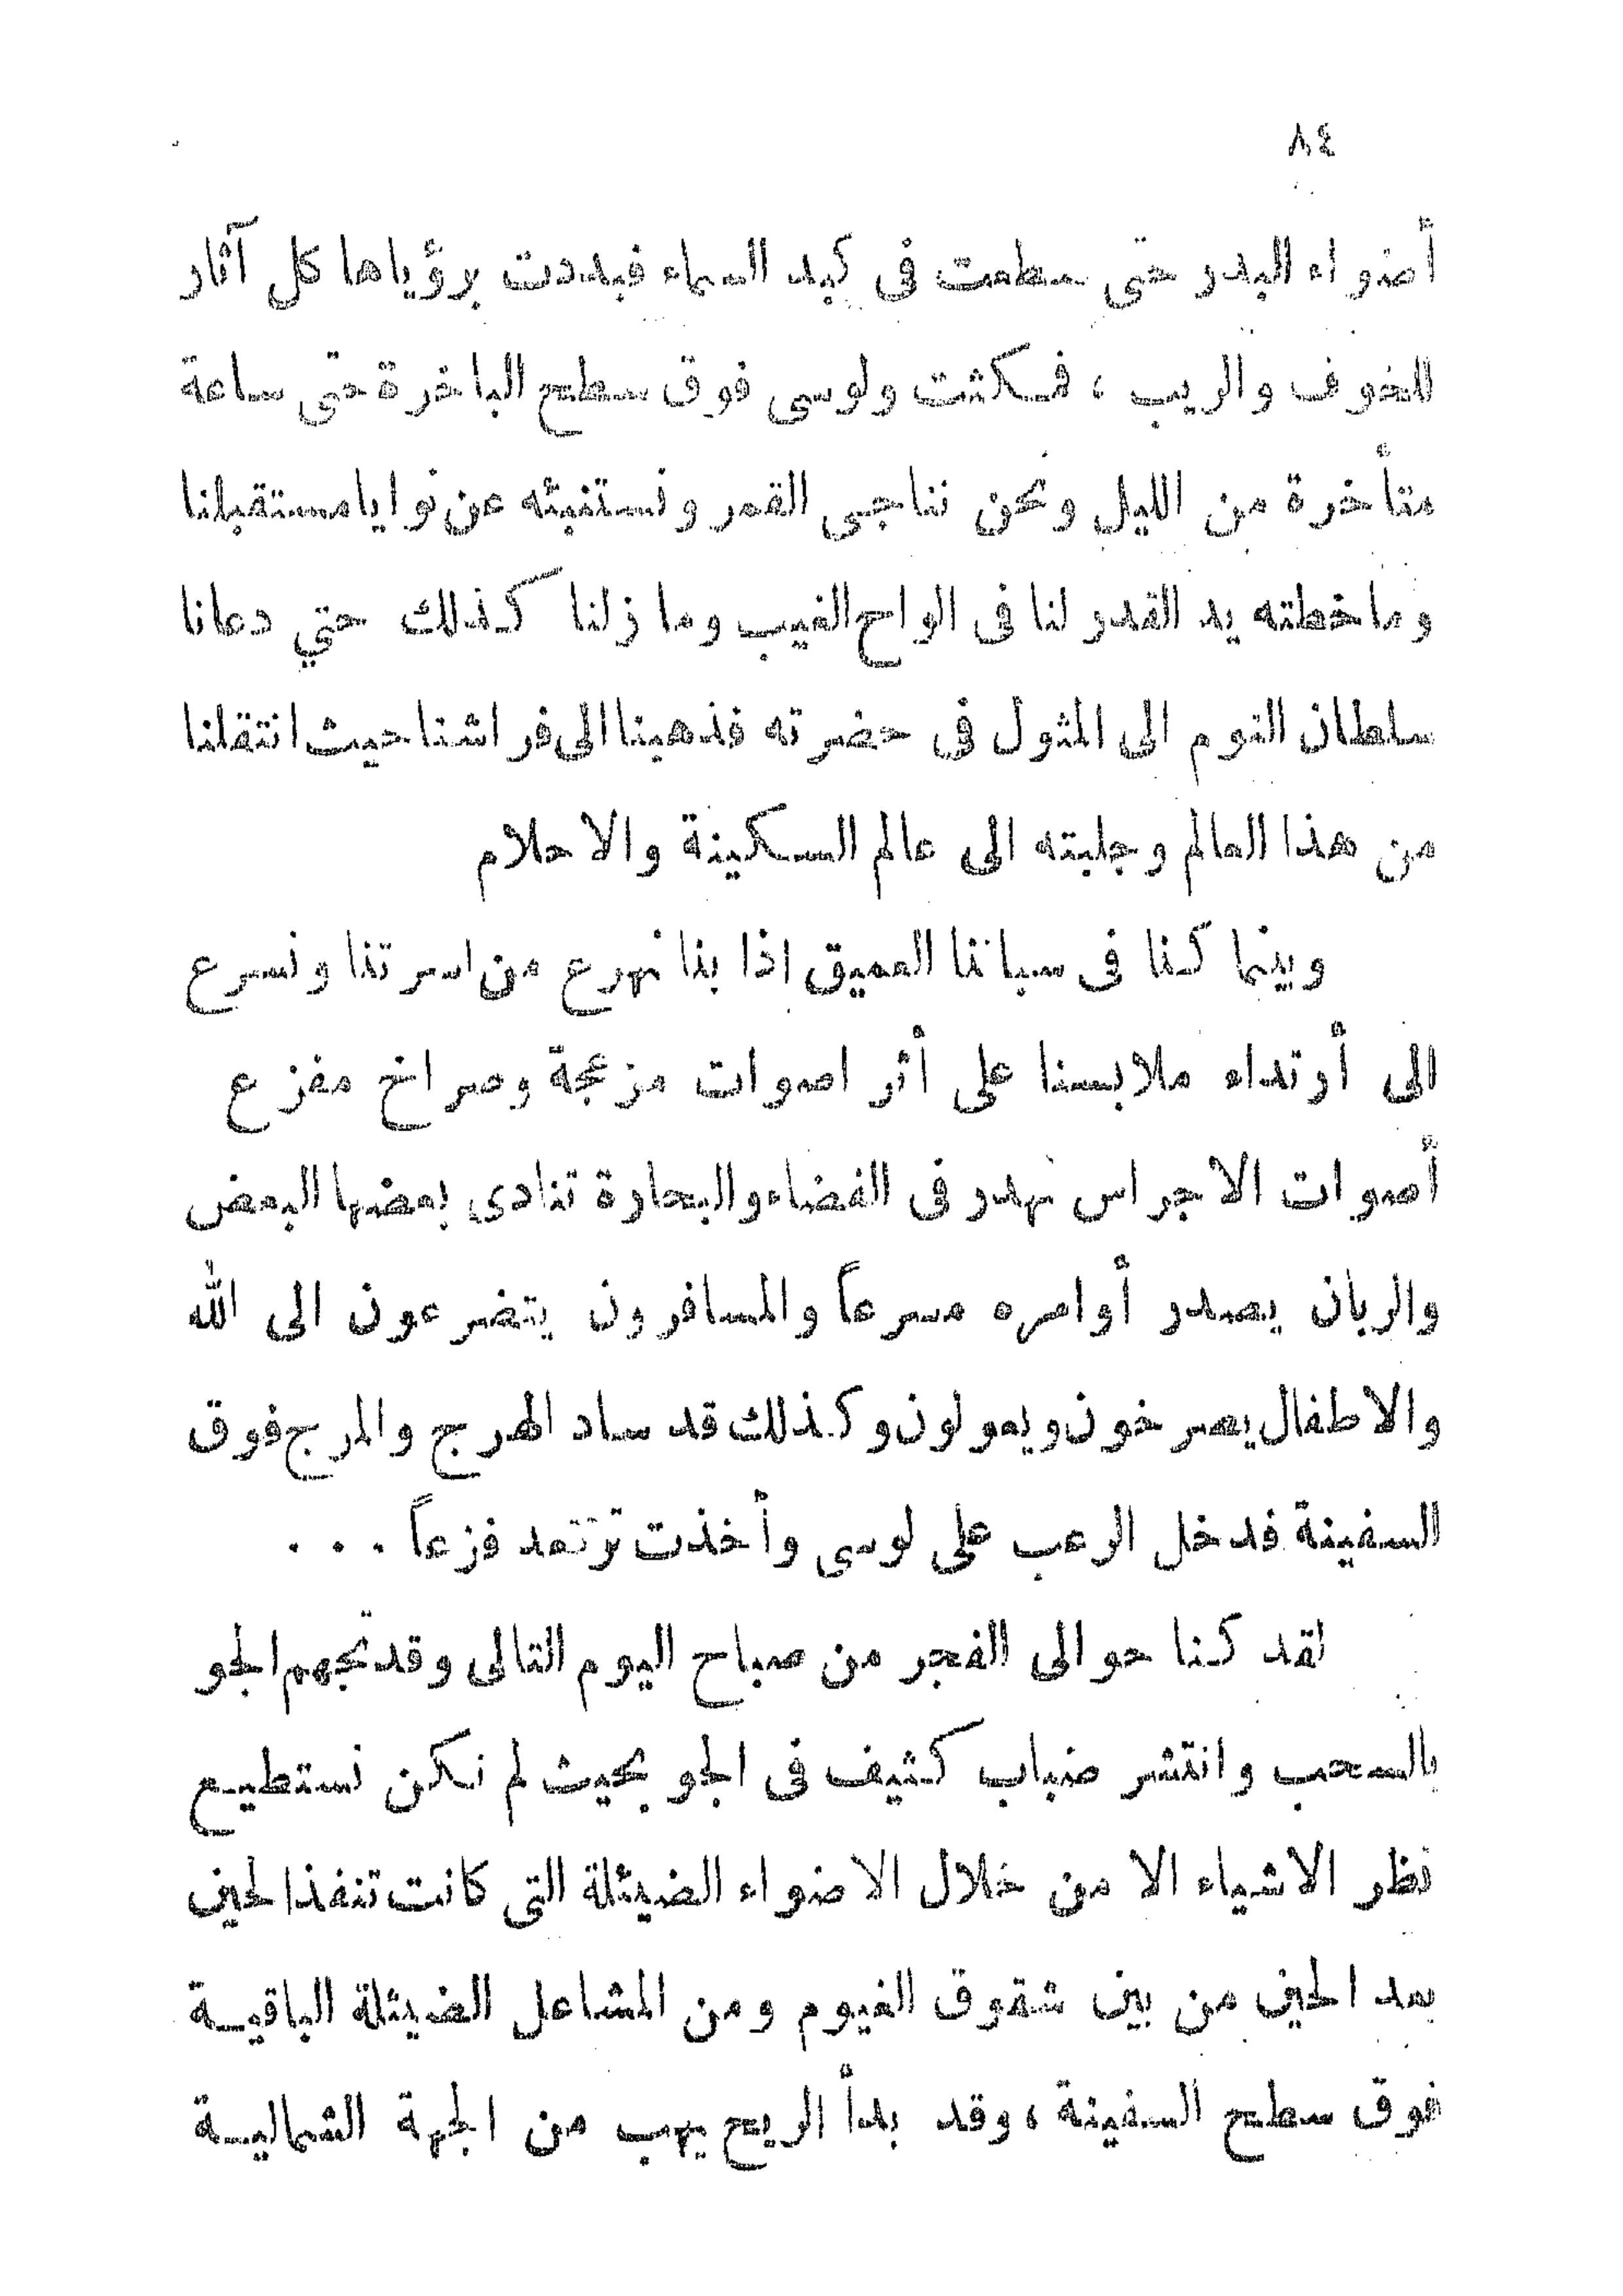 ٨٤
أضواء البدر حتى سطعت فى كبد السماء فبددت برؤياها كل آثار
للخوف والريب ، فمكثت ولوسى فوق سطح الباخرة حتى ساعة
متأخرة من الليل ونحن نناجى القمر ونستنبئه عن نوايا مستقبلنا
وما خطته يد القدر لنا فى الواح الغيب وما زلنا كذلك حتي دعانا
سلطان النوم الى المثول فى حضرته فذهبنا الى فراشنا حيث انتقلنا
من هذا العالم وجلبته الى عالم السكينة والاحلام
وبينما كنا فى سباتنا العميق اذا بنا نهرع من اسرتنا ونسرع
الى أرتداء ملابسنا على أثر اصوات مزعجة وصراخ مفزع
أصوات الاجراس تهدر فى الفضاء والبحارة تنادى بعضها البعض
والربان يصدر أوامره مسرعاً والمسافرون يتضرعون الى الله
والاطفال يصرخون ويعولون وكذلك قد ساد الهرج والمرج فوق
السفينة فدخل الرعب على لوسى وأخذت ترتعد فزعاً . . .
لقد كنا حوالى الفجر من صباح اليوم التالى وقد تجهم الجو
بالسحب وانتشر ضباب كثيف فى الجو بحيث لم نكن نستطيع
نظر الاشياء الا من خلال الاضواء الضيئلة التى كانت تنفذ الحين
بعد الحين من بين شقوق الغيوم ومن المشاعل الضيئلة الباقية
فوق سطح السفينة ، وقد بدأ الريح يهب من الجهة الشمالية